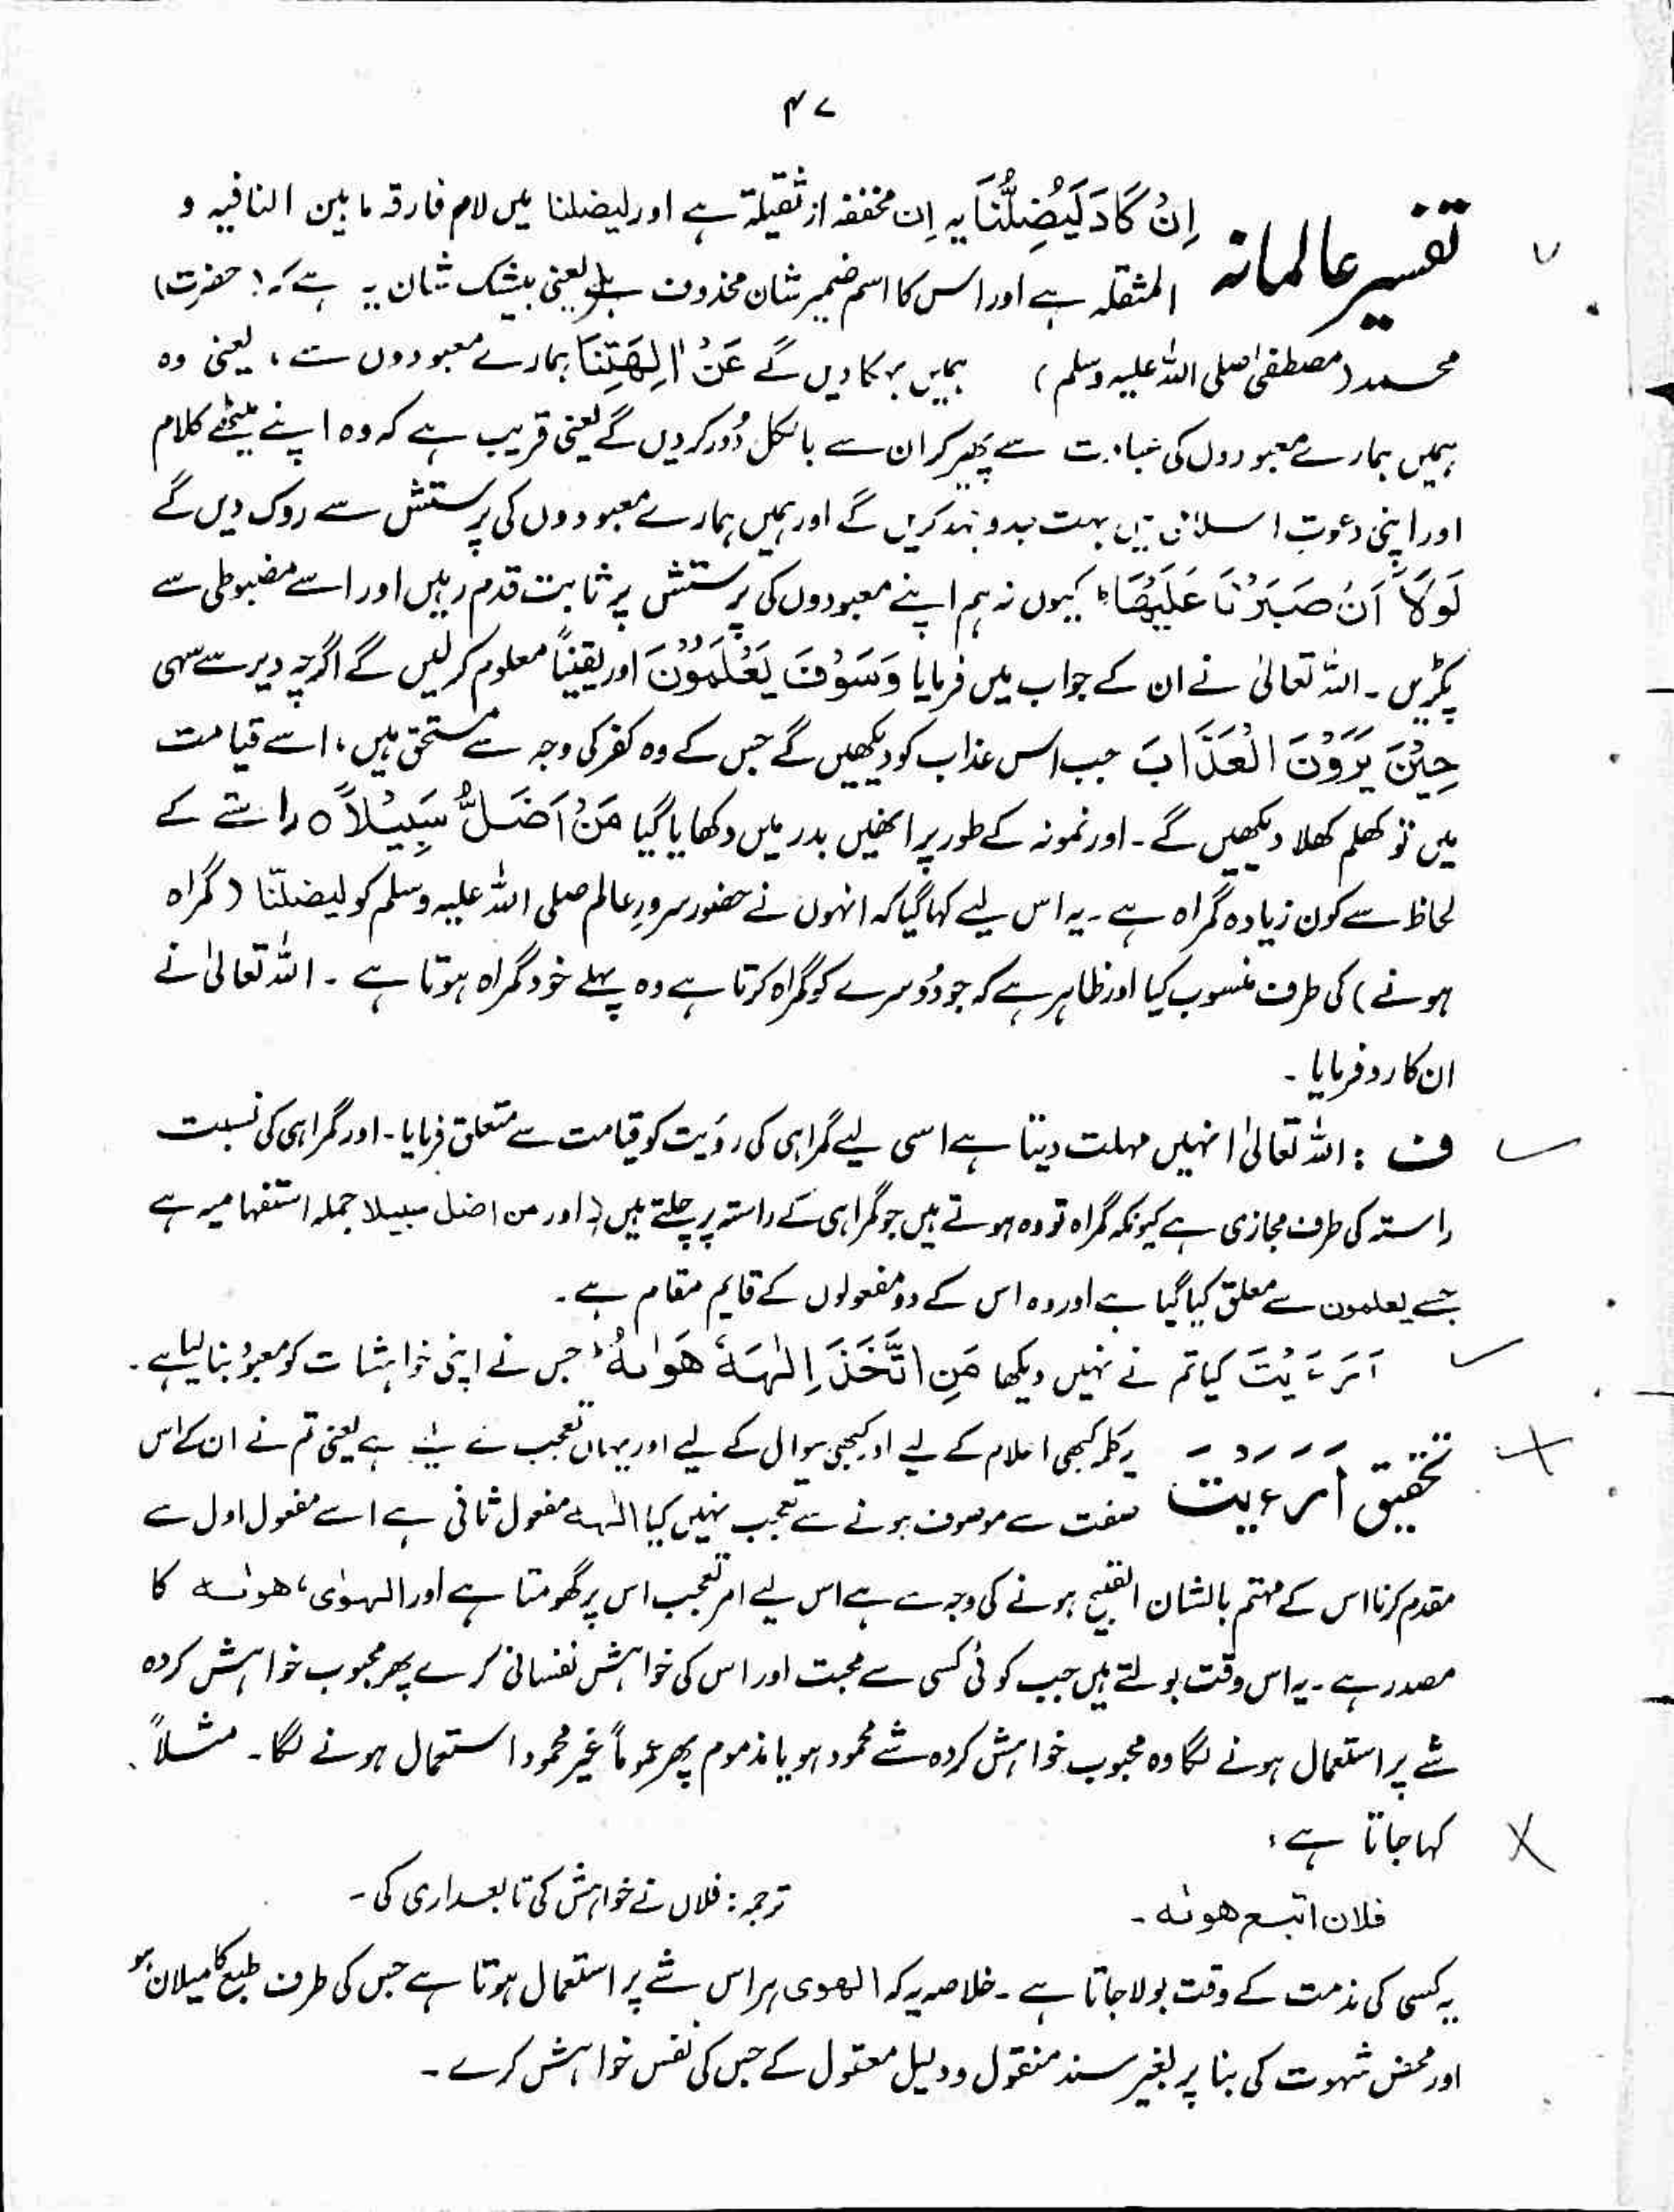 ۴۷
تفسیر عالمانہ اِنْ كَادَ لَيُضِلُّنَا یہ اِن مخففہ از ثقیلۃ ہے اور لیضلنا میں لام فارقہ مابین النافیہ و
المثقلہ ہے اور اس کا اسم ضمیر شان محذوف ہے یعنی بیشک شان یہ ہے کہ (حضرت)
محمد (مصطفیٰ صلی اللہ علیہ وسلم) ہمیں بہکا دیں گے عَنْ اٰلِهَتِنَا ہمارے معبودوں سے، یعنی وہ
ہمیں ہمارے معبودوں کی عبادت سے پھیر کر ان سے بالکل دُور کر دیں گے یعنی قریب ہے کہ وہ اپنے میٹھے کلام
اور اپنی دعوتِ اسلامی میں بہت جدوجہد کریں گے اور ہمیں ہمارے معبودوں کی پرستش سے روک دیں گے
لَوْلَاۤ اَنْ صَبَرْنَا عَلَيْهَا ؕ کیوں نہ ہم اپنے معبودوں کی پرستش پر ثابت قدم رہیں اور اسے مضبوطی سے
پکڑیں۔ اللہ تعالیٰ نے ان کے جواب میں فرمایا وَسَوْفَ يَعْلَمُوْنَ اور یقیناً معلوم کرلیں گے اگرچہ دیر سے سہی
حِيْنَ يَرَوْنَ الْعَذَابَ جب اس عذاب کو دیکھیں گے جس کے وہ کفر کی وجہ سے مستحق ہیں، اسے قیامت
میں تو کھلم کھلا دیکھیں گے۔ اور نمونہ کے طور پر انھیں بدر میں دکھایا گیا مَنْ اَضَلُّ سَبِيْلًا ○ راستے کے
لحاظ سے کون زیادہ گمراہ ہے۔ یہ اس لیے کہا گیا کہ انہوں نے حضور سرورِ عالم صلی اللہ علیہ وسلم کو لیضلنّا (گمراہ
ہونے) کی طرف منسوب کیا اور ظاہر ہے کہ جو دُوسرے کو گمراہ کرتا ہے وہ پہلے خود گمراہ ہوتا ہے۔ اللہ تعالیٰ نے
ان کا رد فرمایا۔
ف : اللہ تعالیٰ انہیں مہلت دیتا ہے اسی لیے گمراہی کی رؤیت کو قیامت سے متعلق فرمایا۔ اور گمراہی کی نسبت
راستہ کی طرف مجازی ہے کیونکہ گمراہ تو وہ ہوتے ہیں جو گمراہی کے راستہ پر چلتے ہیں اور من اضل سبیلا جملہ استفہامیہ ہے
جسے یعلمون سے معلق کیا گیا ہے اور وہ اس کے دو مفعولوں کے قایم مقام ہے۔
اَرَءَيْتَ کیا تم نے نہیں دیکھا مَنِ اتَّخَذَ اِلٰهَهٗ هَوٰىهُ ؕ جس نے اپنی خواہشات کو معبود بنا لیا ہے۔
تحقیق اَرَءَيْتَ یہ کلمہ کبھی اعلام کے لیے اور کبھی سوال کے لیے اور یہاں تعجب کے لیے ہے یعنی تم نے ان کے اس
صفت سے موصوف ہونے سے تعجب نہیں کیا الٰہہ مفعول ثانی ہے اسے مفعول اول سے
مقدم کرنا اس کے مہتم بالشان القبیح ہونے کی وجہ سے ہے اس لیے امر تعجب اس پر گھومتا ہے اور الہوٰی، ھوٰیہ کا
مصدر ہے۔ یہ اس وقت بولتے ہیں جب کوئی کسی سے محبت اور اس کی خواہش نفسانی کرے پھر محبوب خواہش کردہ
شے پر استعمال ہونے لگا وہ محبوب خواہش کردہ شے محمود ہو یا مذموم پھر عموماً غیر محمود استعمال ہونے لگا۔ مثلاً
کہا جاتا ہے؛
فلان اتبع ھوٰىہ۔ ترجمہ: فلاں نے خواہش کی تابعداری کی۔
یہ کسی کی مذمت کے وقت بولا جاتا ہے۔ خلاصہ یہ کہ الھوی ہر اس شے پر استعمال ہوتا ہے جس کی طرف طبع کا میلان ہو
اور محض شہوت کی بنا پر بغیر سند منقول و دلیل معقول کے جس کی نفس خواہش کرے۔